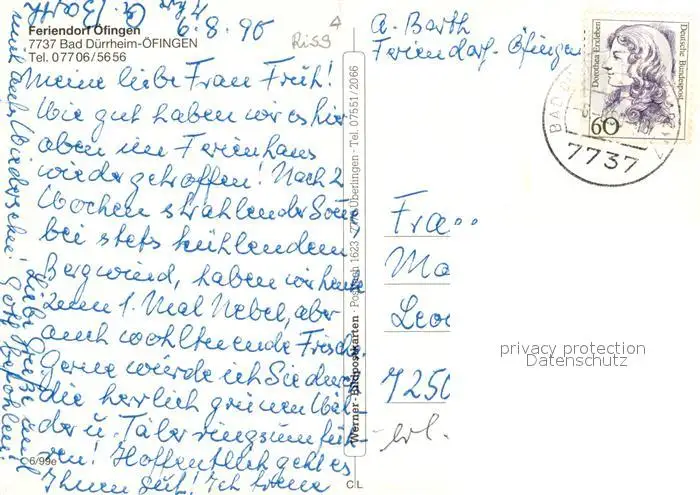 Feriendorf Öfingen
7737 Bad Dürrheim-ÖFINGEN
Tel. 07706/5656
6.8.90
Riss
4
Meine liebe Frau Früh!
Wie gut haben wir es hier
oben im Ferienhaus
wieder getroffen! Nach 2
Wochen strahlender Sonne,
bei stets kühlendem
Bergwind, haben wir heute
zum 1. Mal Nebel, aber
auch wohltuende Frische.
Gerne würde ich Sie durch
die herrlich grünen Wäl-
der u. Täler ringsum füh-
ren! Hoffentlich geht es
Ihnen gut! Ich freue
mich aufs Wiedersehen!
Liebe Grüße und
Gott befohlen!
A. Barth
C 6/99e
Werner-Bildpostkarten · Postfach 1623 · 7770 Überlingen · Tel. 07551/2066
CL
A. Barth
Feriendorf-Öfingen
Dorothea Erxleben
Deutsche Bundespost
60
BAD
7737
Frau
Ma
Leo
7250
erl.
privacy protection
Datenschutz